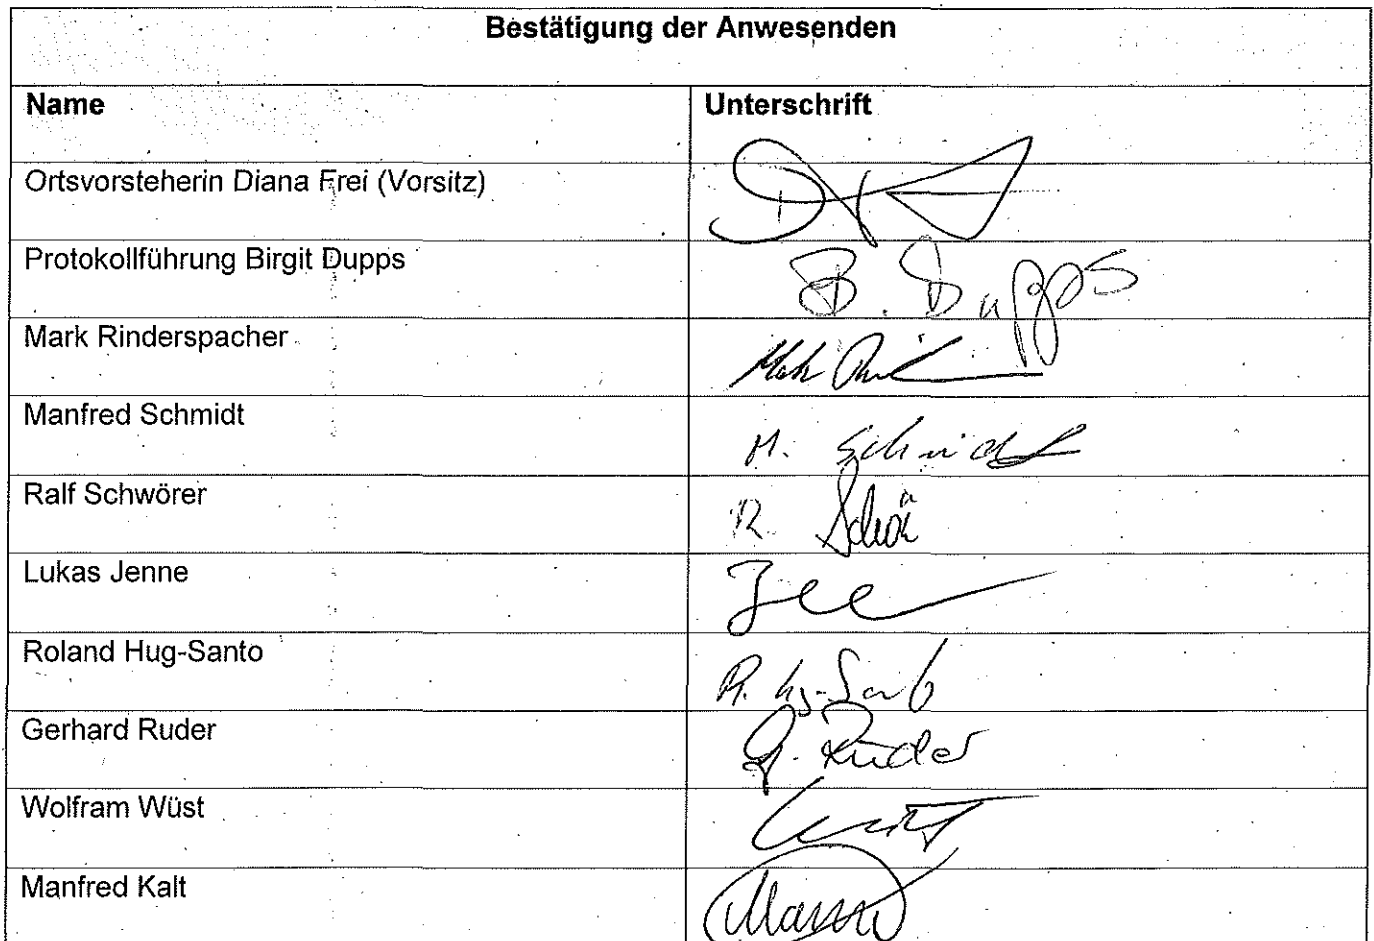 Bestätigung der Anwesenden
Name Unterschrift
Ortsvorsteherin Diana Frei (Vorsitz)
Protokollführung Birgit Dupps B. Dupps
Mark Rinderspacher
Manfred Schmidt M. Schmidt
Ralf Schwörer R.
Lukas Jenne
Roland Hug-Santo
Gerhard Ruder G. Ruder
Wolfram Wüst
Manfred Kalt